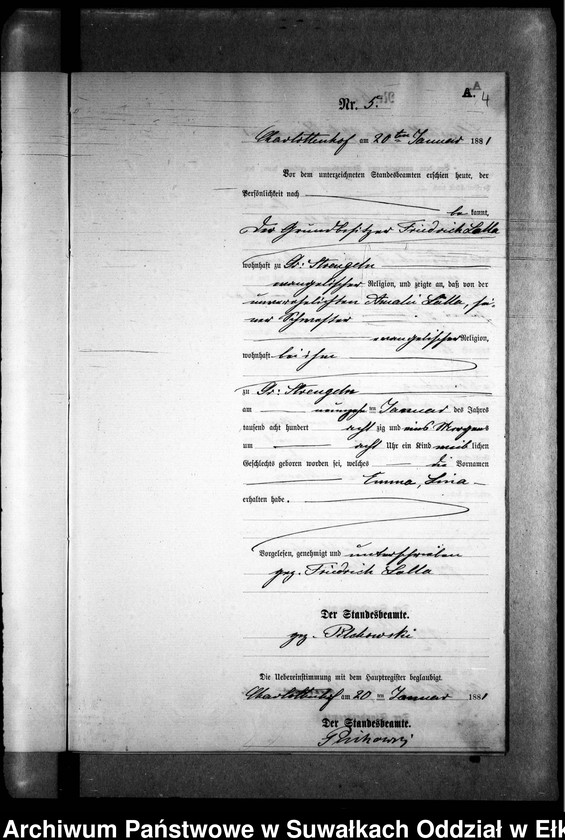 A.
4
Nr. 5.
Charlottenhof am 20ten Januar 1881
Vor dem unterzeichneten Standesbeamten erschien heute, der
Persönlichkeit nach
bekannt,
der Grundbesitzer Friedrich Lalla
wohnhaft zu Gr: Strengeln
evangelischer Religion, und zeigte an, daß von der
unverehelichten Amalie Lalla, sei-
ner Schwester
evangelischer Religion,
wohnhaft bei ihm
zu Gr: Strengeln
am neunzehnten Januar des Jahres
tausend acht hundert achtzig und eins Morgens
um acht Uhr ein Kind weiblichen
Geschlechts geboren worden sei, welches die Vornamen
Emma, Lina
erhalten habe.
Vorgelesen, genehmigt und unterschrieben
gez. Friedrich Lalla
Der Standesbeamte.
gez.
Die Uebereinstimmung mit dem Hauptregister beglaubigt.
Charlottenhof am 20ten Januar 1881
Der Standesbeamte.
Archiwum Państwowe w Suwałkach Oddział w Ełk